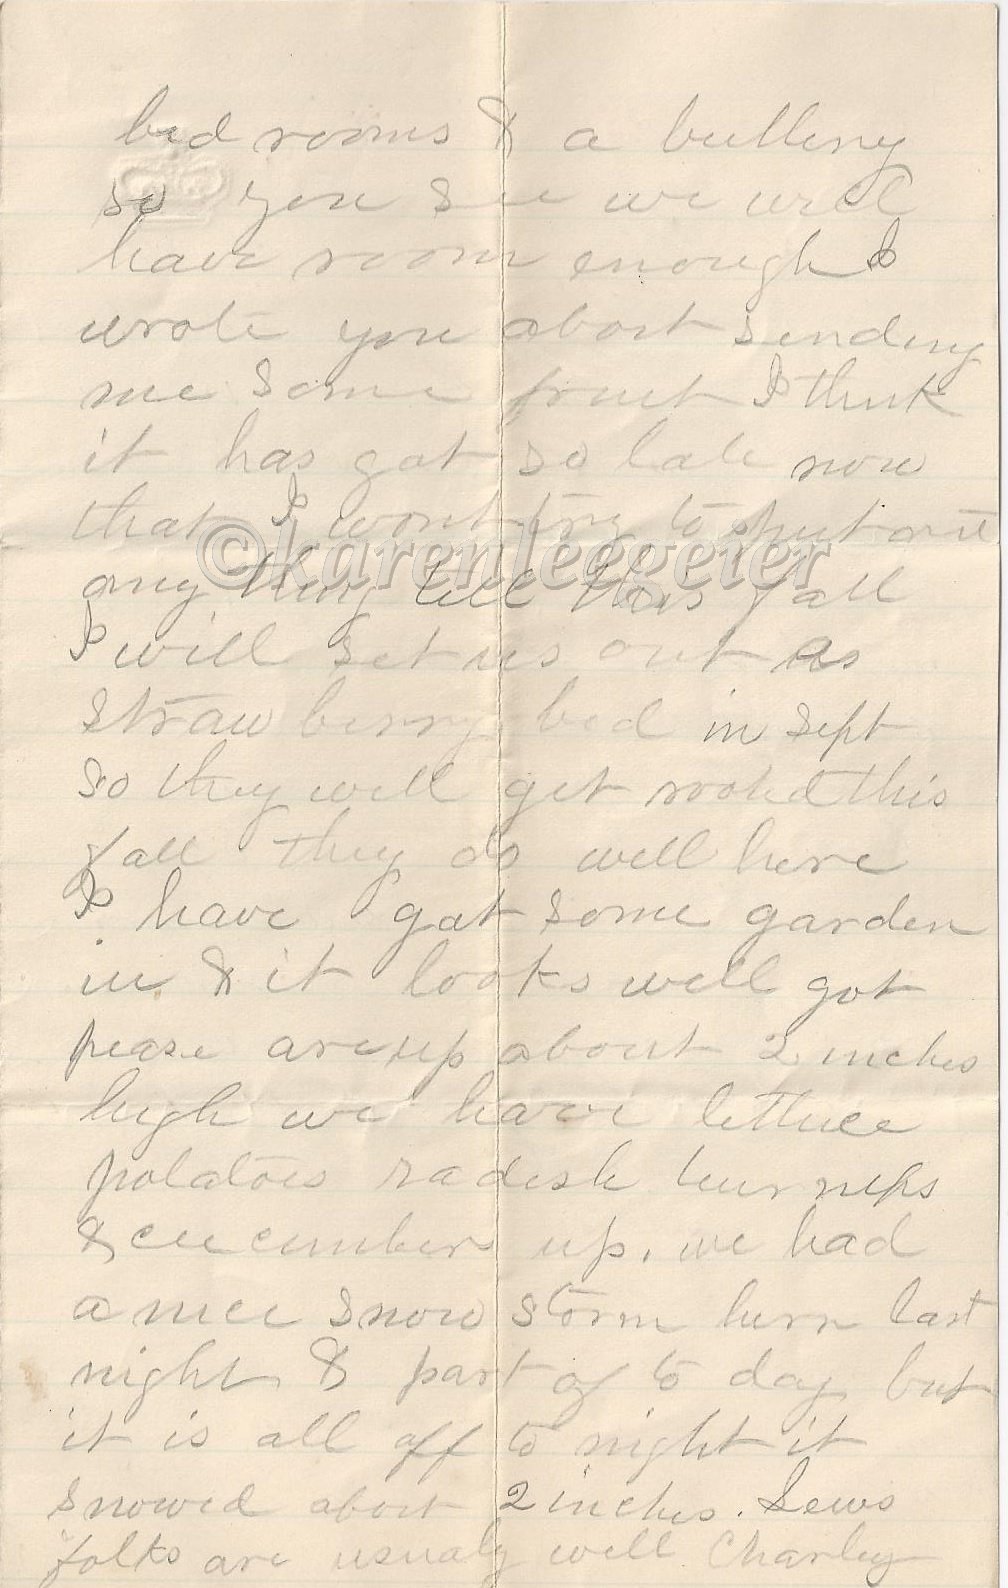 bed rooms & a buttery
so you see we will
have room enough I
wrote you about sending
me some fruit I think
it has got so late now
that I wont try to put out
any thing till this fall
I will set us out as
straw berry bed in Sept
so they will get rooted this
fall they do well here
I have got some garden
in & it looks well got
pease are up about 2 inches
high we have lettuce
potatoes radish turnips
& cucumbers up. we had
a nice snow storm here last
night & part of to day but
it is all off to night it
snowed about 2 inches. Lews
folks are usualy well Charley
©karenleegeier